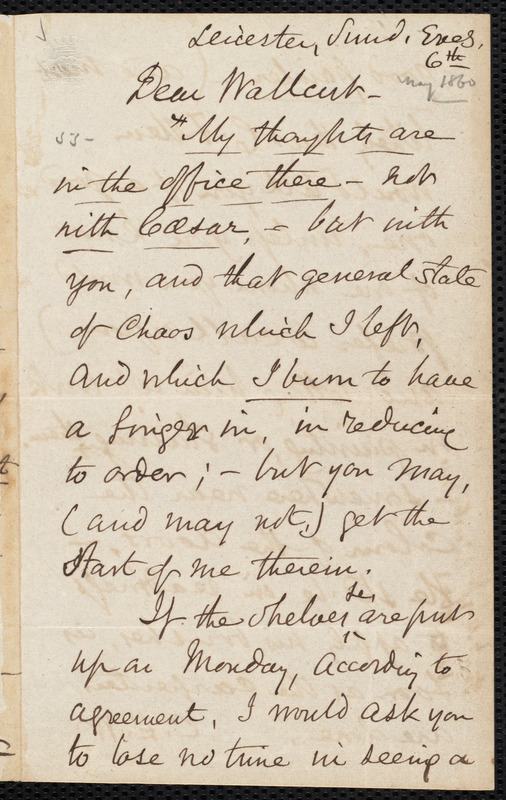 Leicester, Sund. Eveg.
6th
May 1860
Dear Wallcut -
53 -
"My thoughts are
in the office there - not
with Cæsar, - but with
you, and that general state
of Chaos which I left,
and which I burn to have
a finger in, in reducing
to order; - but you may,
(and may not,) get the
start of me therein.
If the shelves are put
up on Monday, according to
agreement, I would ask you
to lose no time in seeing a